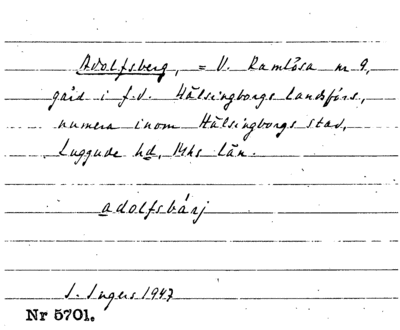 Adolfsberg, = V. Ramlösa nr 9,
gård i f.d. Hälsingborgs landsförs.,
numera inom Hälsingborgs stad,
Luggude hd, Mhs län.
adolfsbárj
I. Ingers 1947
Nr 5701.